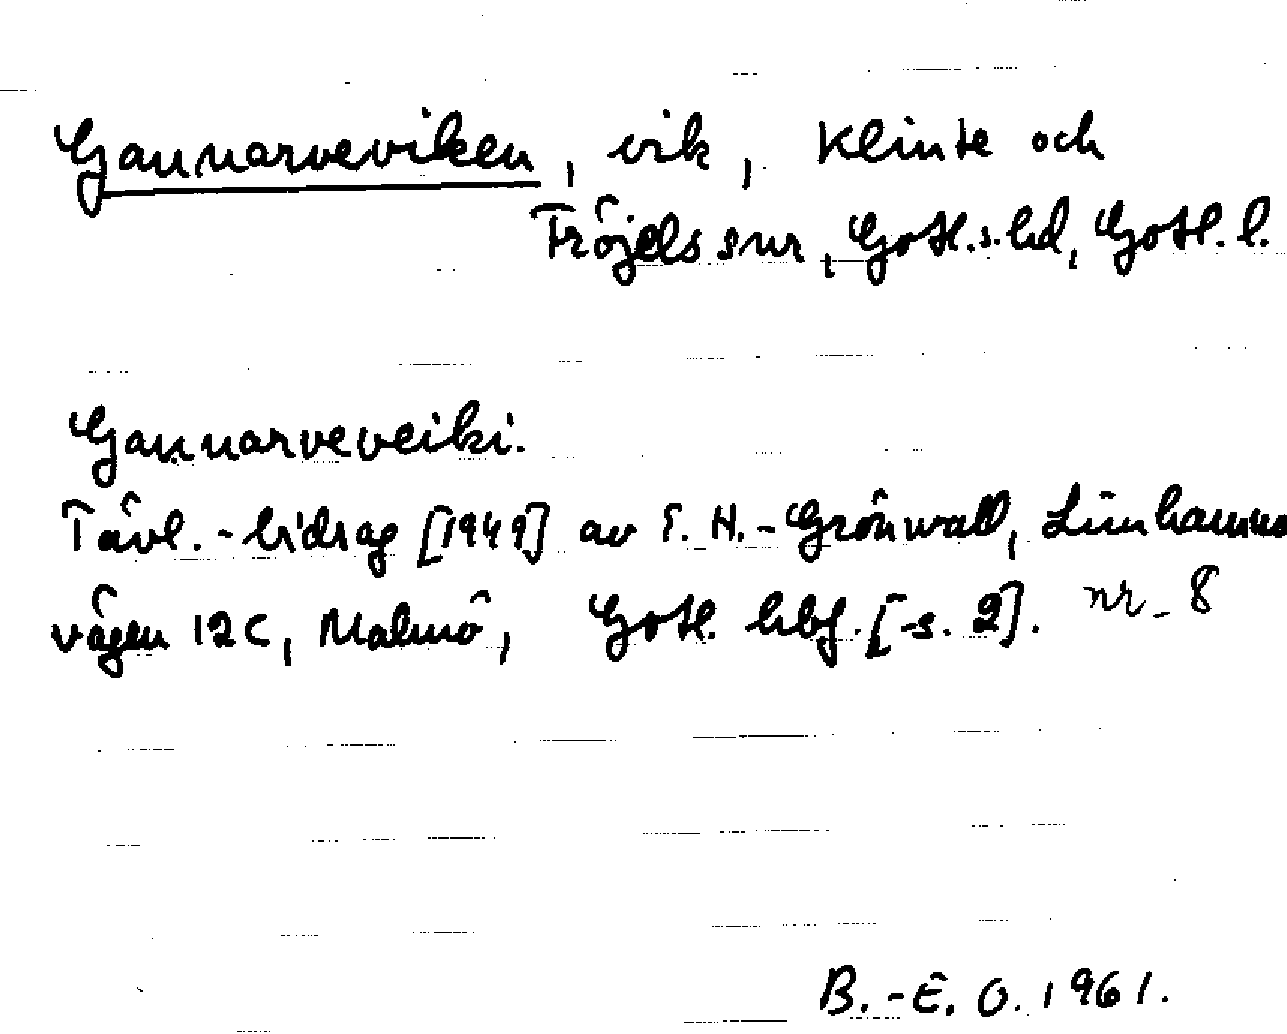 Gannarveviken, vik, Klinte och
Fröjels snr, Gotl.s.hd, Gotl.l.
Gannarveveiki.
Tävl.-bidrag [1949] av E. H.-Grönwall, Limhamns
vägen 12C, Malmö, Gotl. hbf. [s. 2]. nr 8
B.-E. O. 1961.